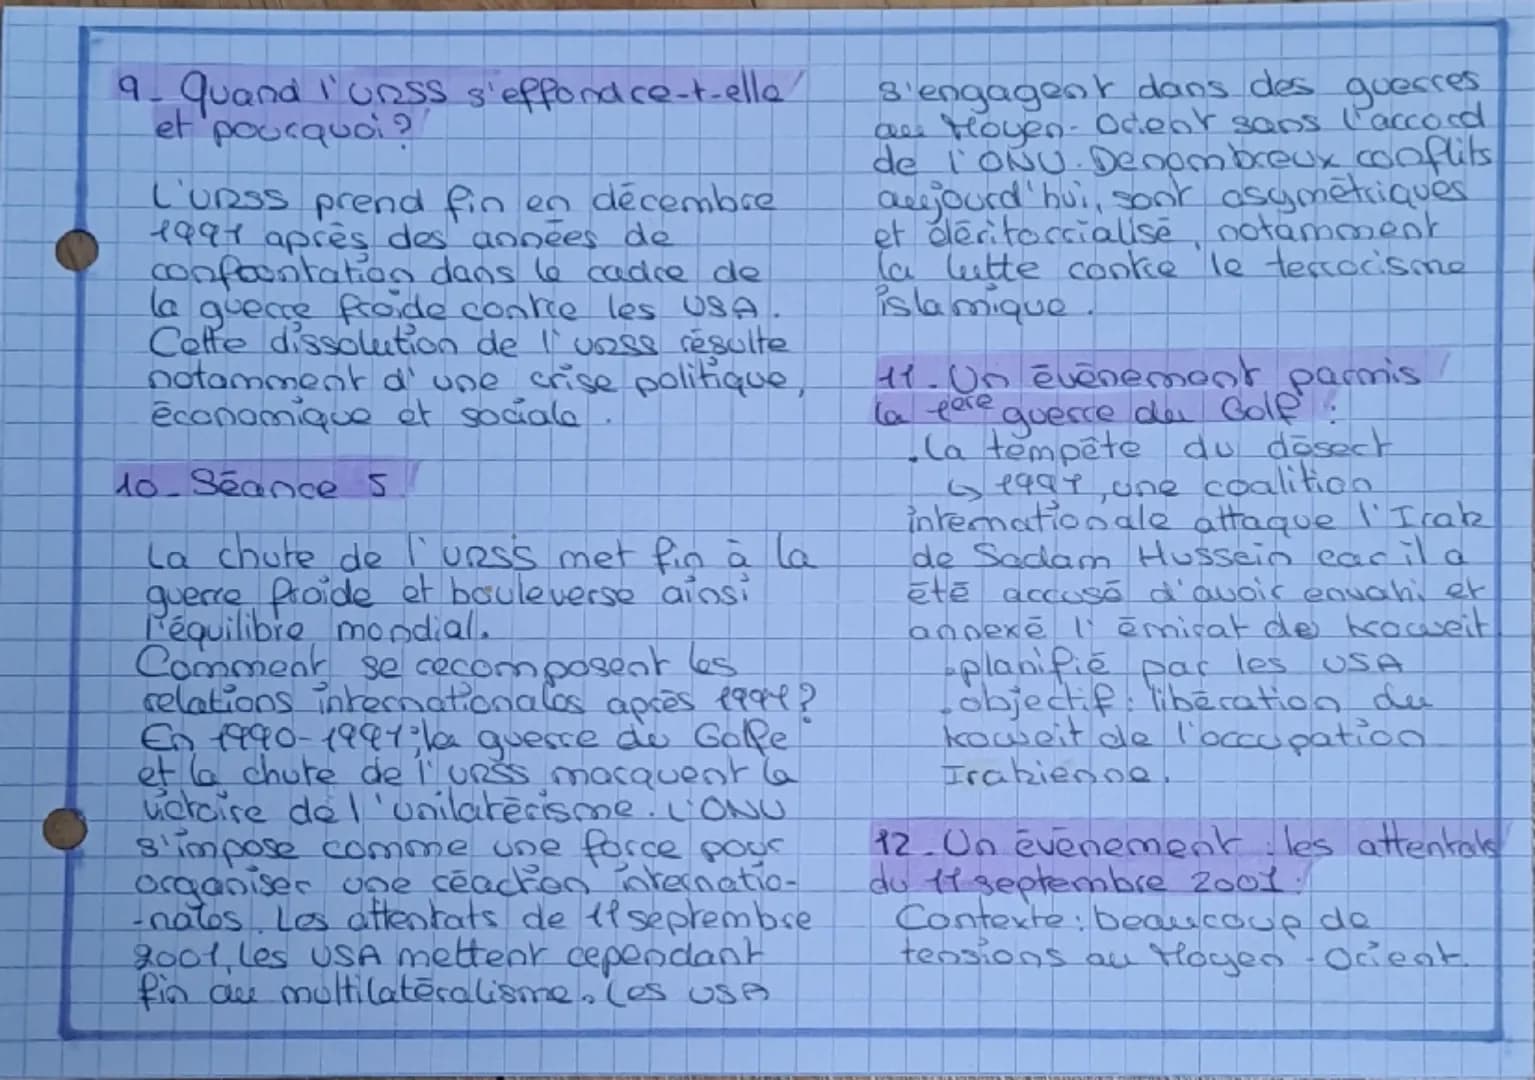 9_ Quand l'URSS s'effondre-t-elle
et pourquoi?
L'URSS prend fin en décembre
1991 après des années de
confrontation dans le cadre de
la guerre froide contre les USA.
Cette dissolution de l'URSS résulte
notamment d'une crise politique,
économique et sociale.
10_ Séance 5
La chute de l'URSS met fin à la
guerre froide et bouleverse ainsi
l'équilibre mondial.
Comment se recomposent les
relations internationales après 1991?
En 1990-1991, la guerre du Golfe
et la chute de l'URSS marquent la
victoire de l'unilatérisme. L'ONU
s'impose comme une force pour
organiser une réaction internatio-
-nales. Les attentats de 11 septembre
2001, les USA mettent cependant
fin au multilatéralisme. Les USA
s'engagent dans des guerres
au Moyen-Orient sans l'accord
de l'ONU. De nombreux conflits
aujourd'hui, sont asymétriques
et déritorrialisé, notamment
la lutte contre le terrorisme
islamique.
11_ Un évènement parmis
la 1ère guerre du Golf :
.La tempête du désert
↳ 1991, une coalition
internationale attaque l'Irak
de Sadam Hussein car il a
été accusé d'avoir envahi et
annexé l'émirat de Koweit
-planifié par les USA
-objectif: libération du
Koweit de l'occupation
Irakienne.
12_ Un évènement : les attentats
du 11 septembre 2001:
Contexte: beaucoup de
tensions au Moyen-Orient.